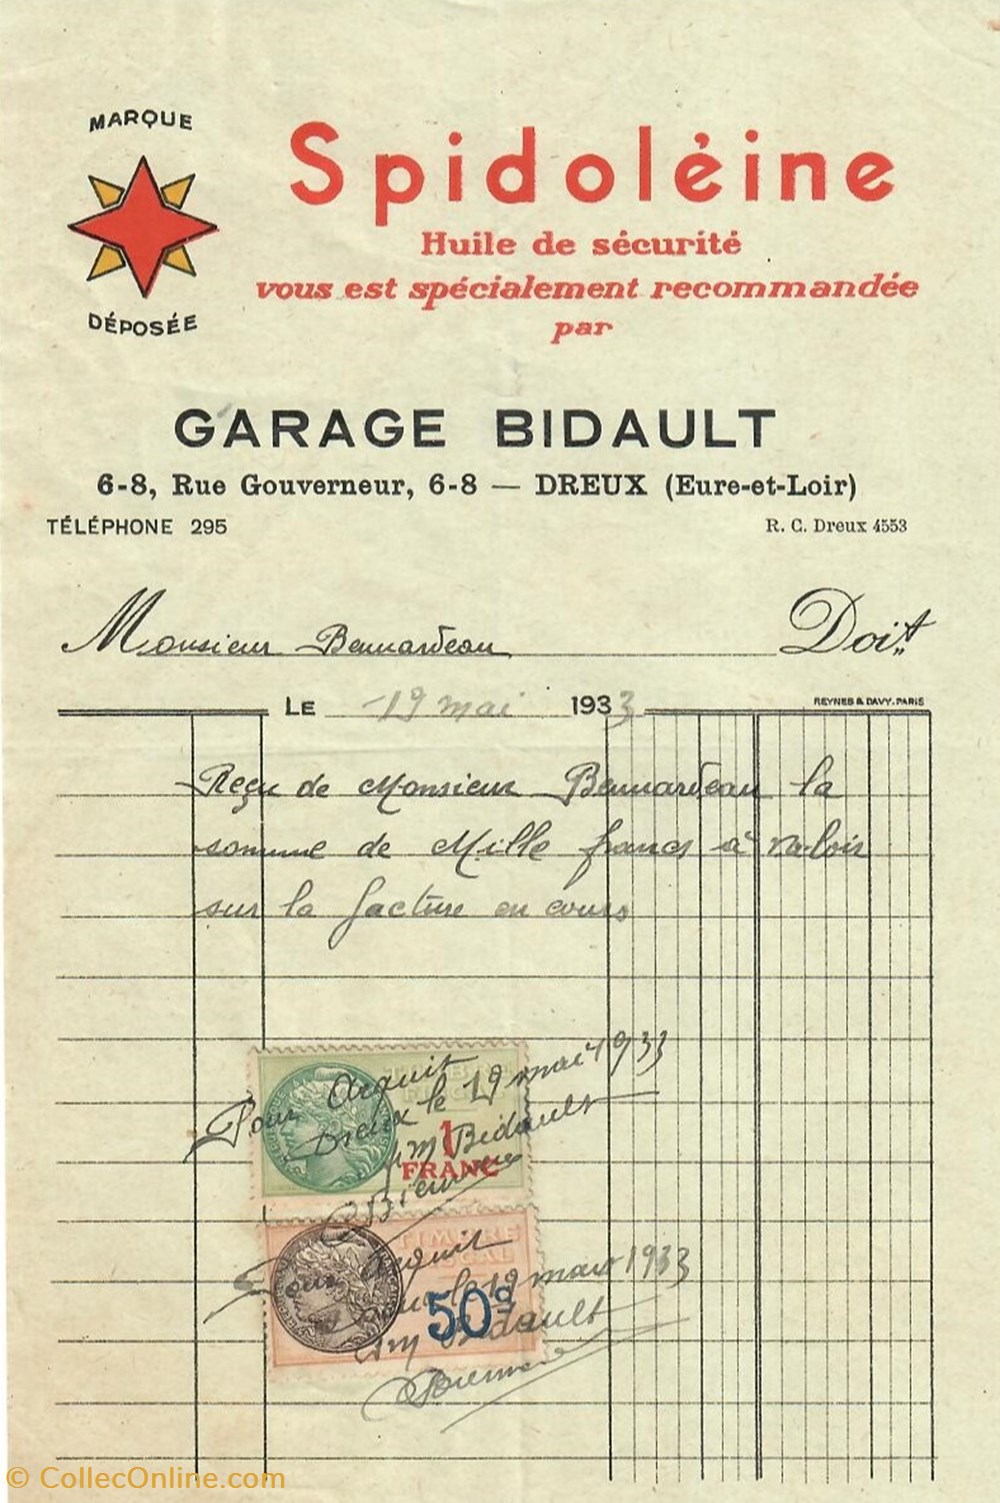 MARQUE
DÉPOSÉE
Spidoléine
Huile de sécurité
vous est spécialement recommandée
par
GARAGE BIDAULT
6-8, Rue Gouverneur, 6-8 — DREUX (Eure-et-Loir)
TÉLÉPHONE 295
R. C. Dreux 4553
Monsieur Bennardeau Doit
LE 19 mai 1933
REYNES & DAVY. PARIS
Reçu de Monsieur Bennardeau la
somme de Mille francs à valoir
sur la facture en cours
Pour Acquit
Dreux le 19 mai 1933
Bidault
1
FRANC
Pour Acquit
le 19 mars 1933
50c
Bidault
© CollecOnline.com